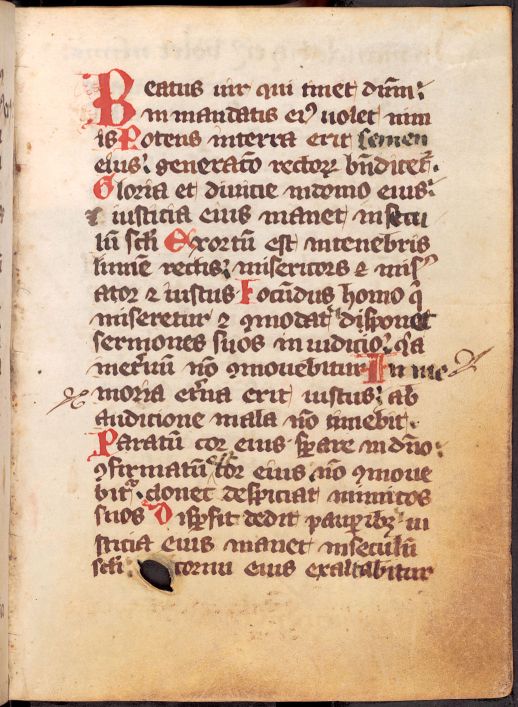 Beatus uir qui timet dn̄m:
in mandatis eiꝰ uolet nim
is Potens interra erit semen
eius: generac̄o rectoꝝ bn̄dicet᷑.
Gloria et diuicie indomo eius:
⁊ iusticia eius manet insecu
lū sc̄li Exortū est intenebris
lumē rectis: misericors ⁊ misꝰ
ator ⁊ iustus Iocūdus homo q̄
miseretur ⁊ ꝯmodat disponet
sermones suos in iudicio: q̄a
ineternū nō ꝯmouebitur In me
moria et̄na erit iustus: ab
audicione mala nō timebit.
Paratū cor eius sꝑare indn̄o:
ꝯfirmatū cor eius: nō ꝯmoue
bit᷑ donec despiciat inimicos
suos Disꝑsit dedit pauꝑibꝫ iu
sticia eius manet inseculū
sc̄li: cornu eius exaltabitur